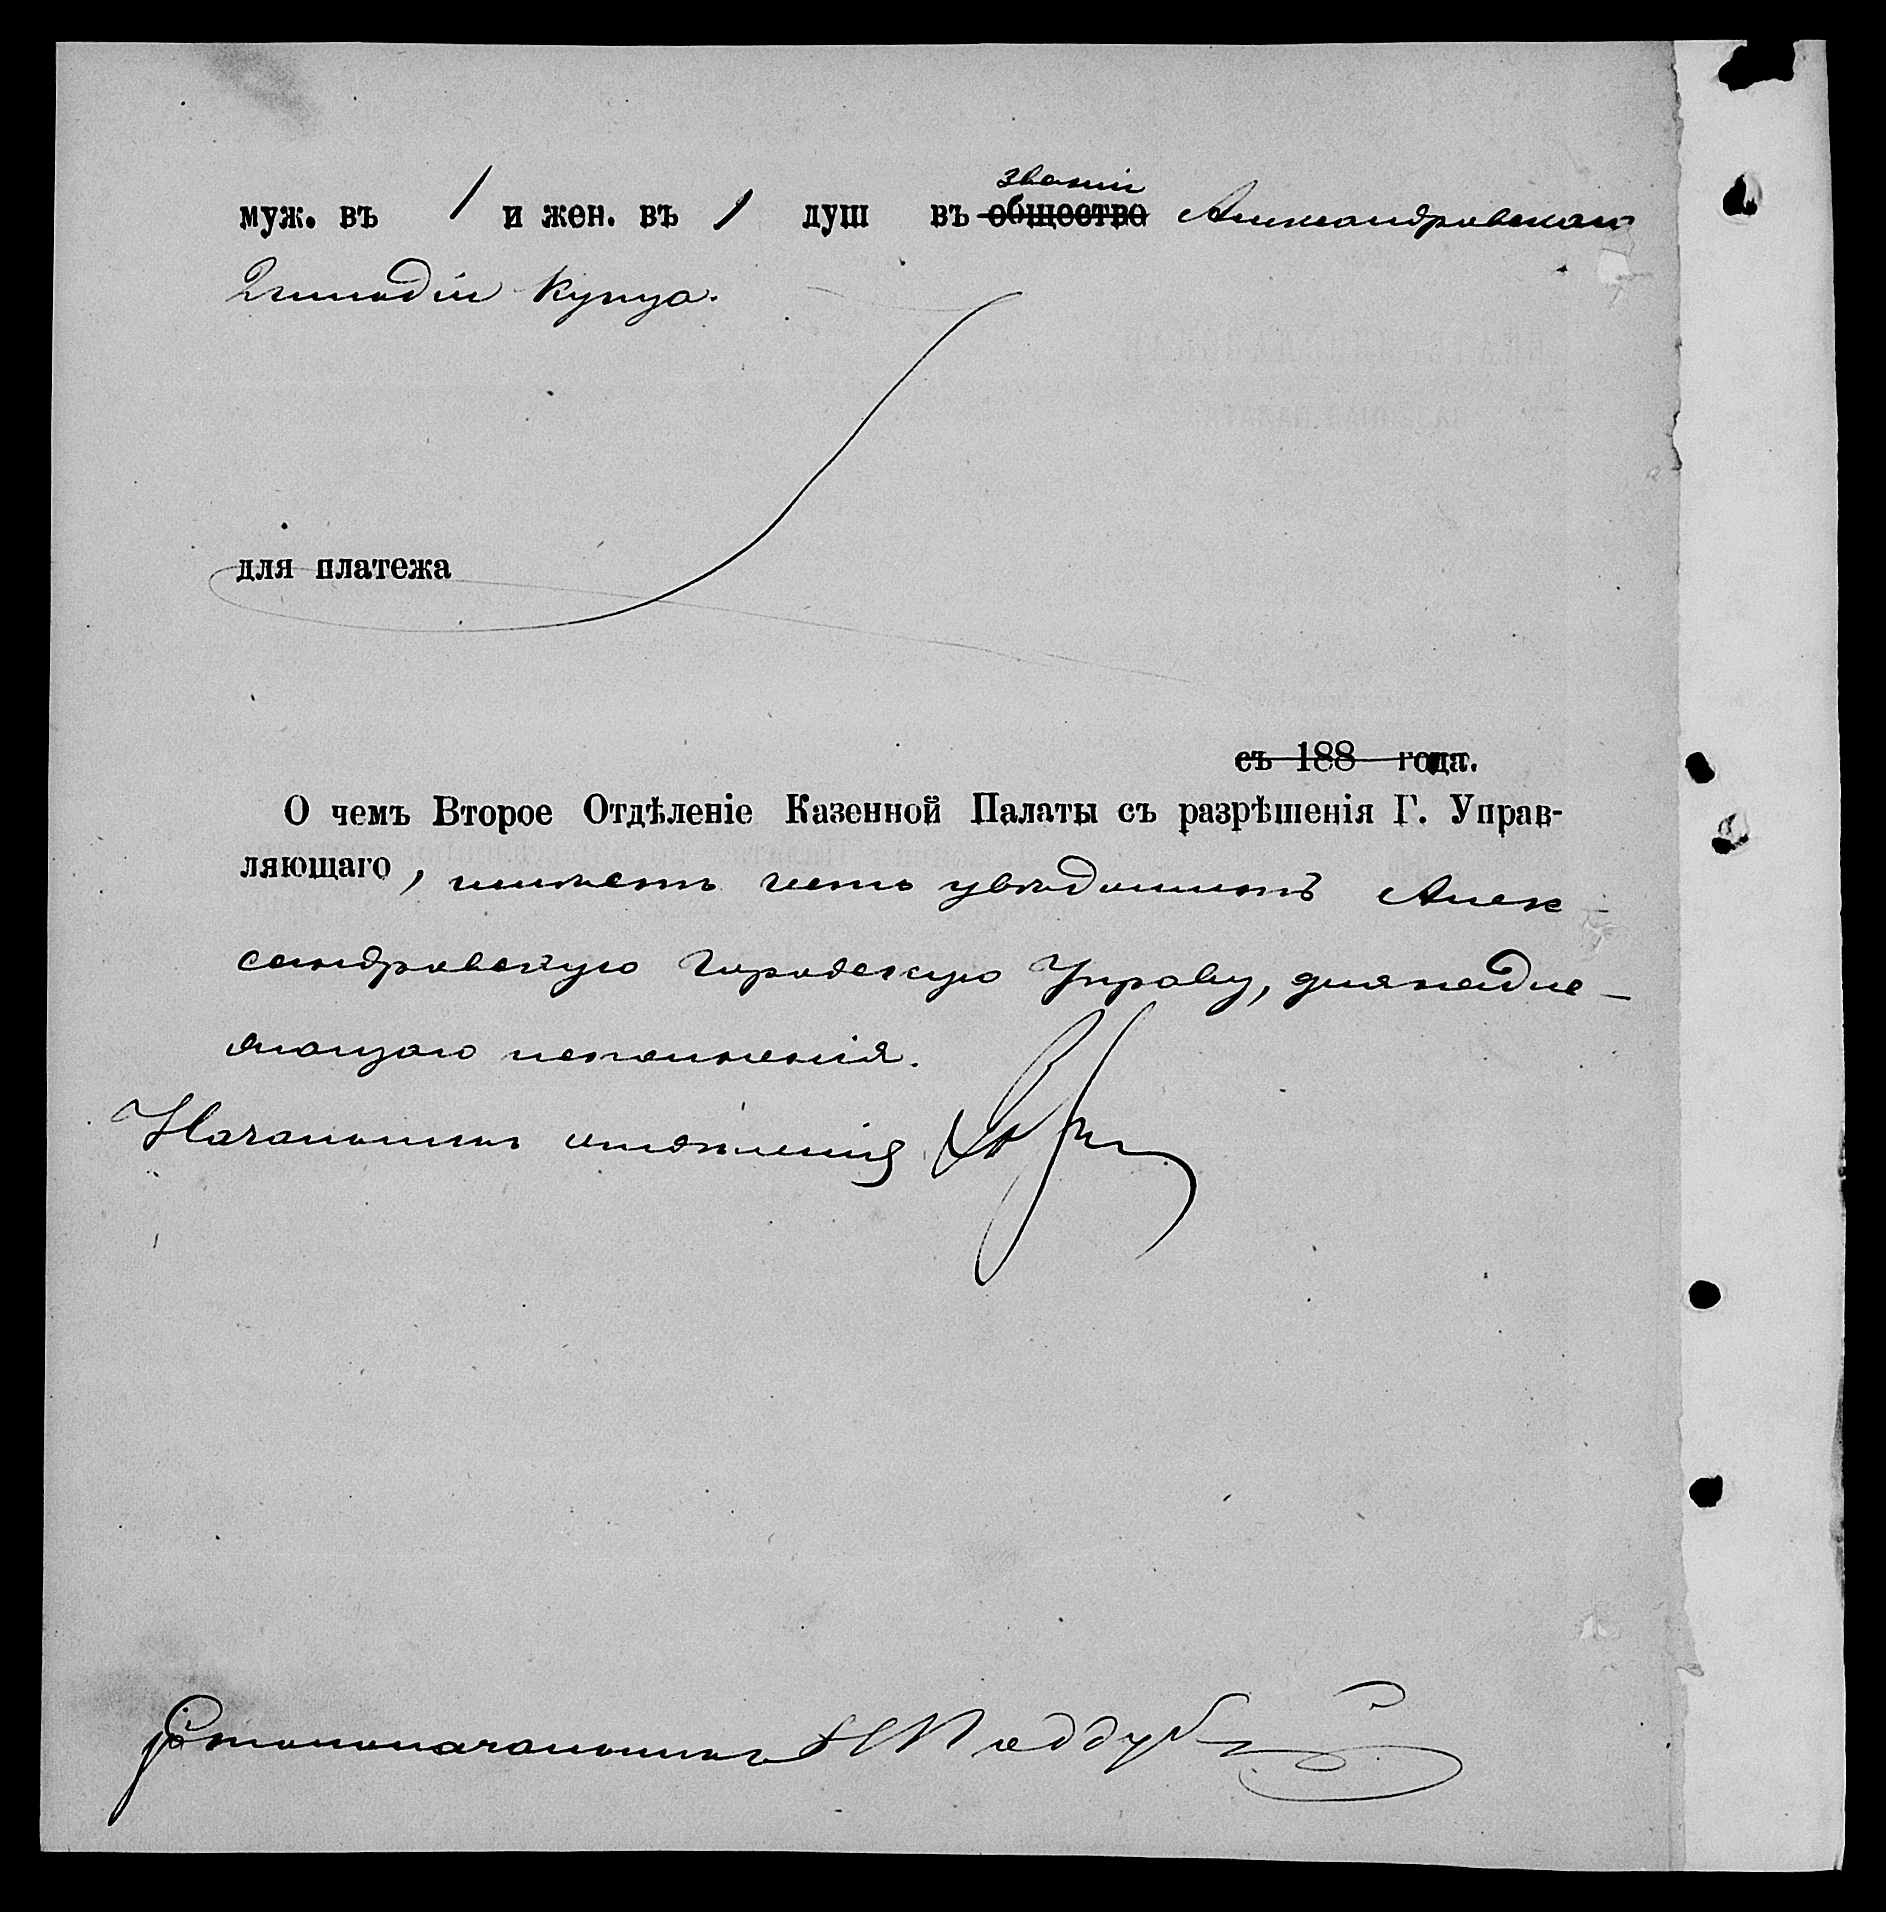 званіи
муж. въ 1 и жен. въ 1 душ въ общество Александровскаго
2 гильдіи купца.
для платежа
съ 188 года.
О чемъ Второе Отдѣленіе Казенной Палаты съ разрѣшенія Г. Управ-
ляющаго, имѣетъ честь увѣдомить Алек-
сандровскую Городскую Управу, для надле-
жащаго исполненія.
Начальникъ отдѣленія
Столоначальникъ